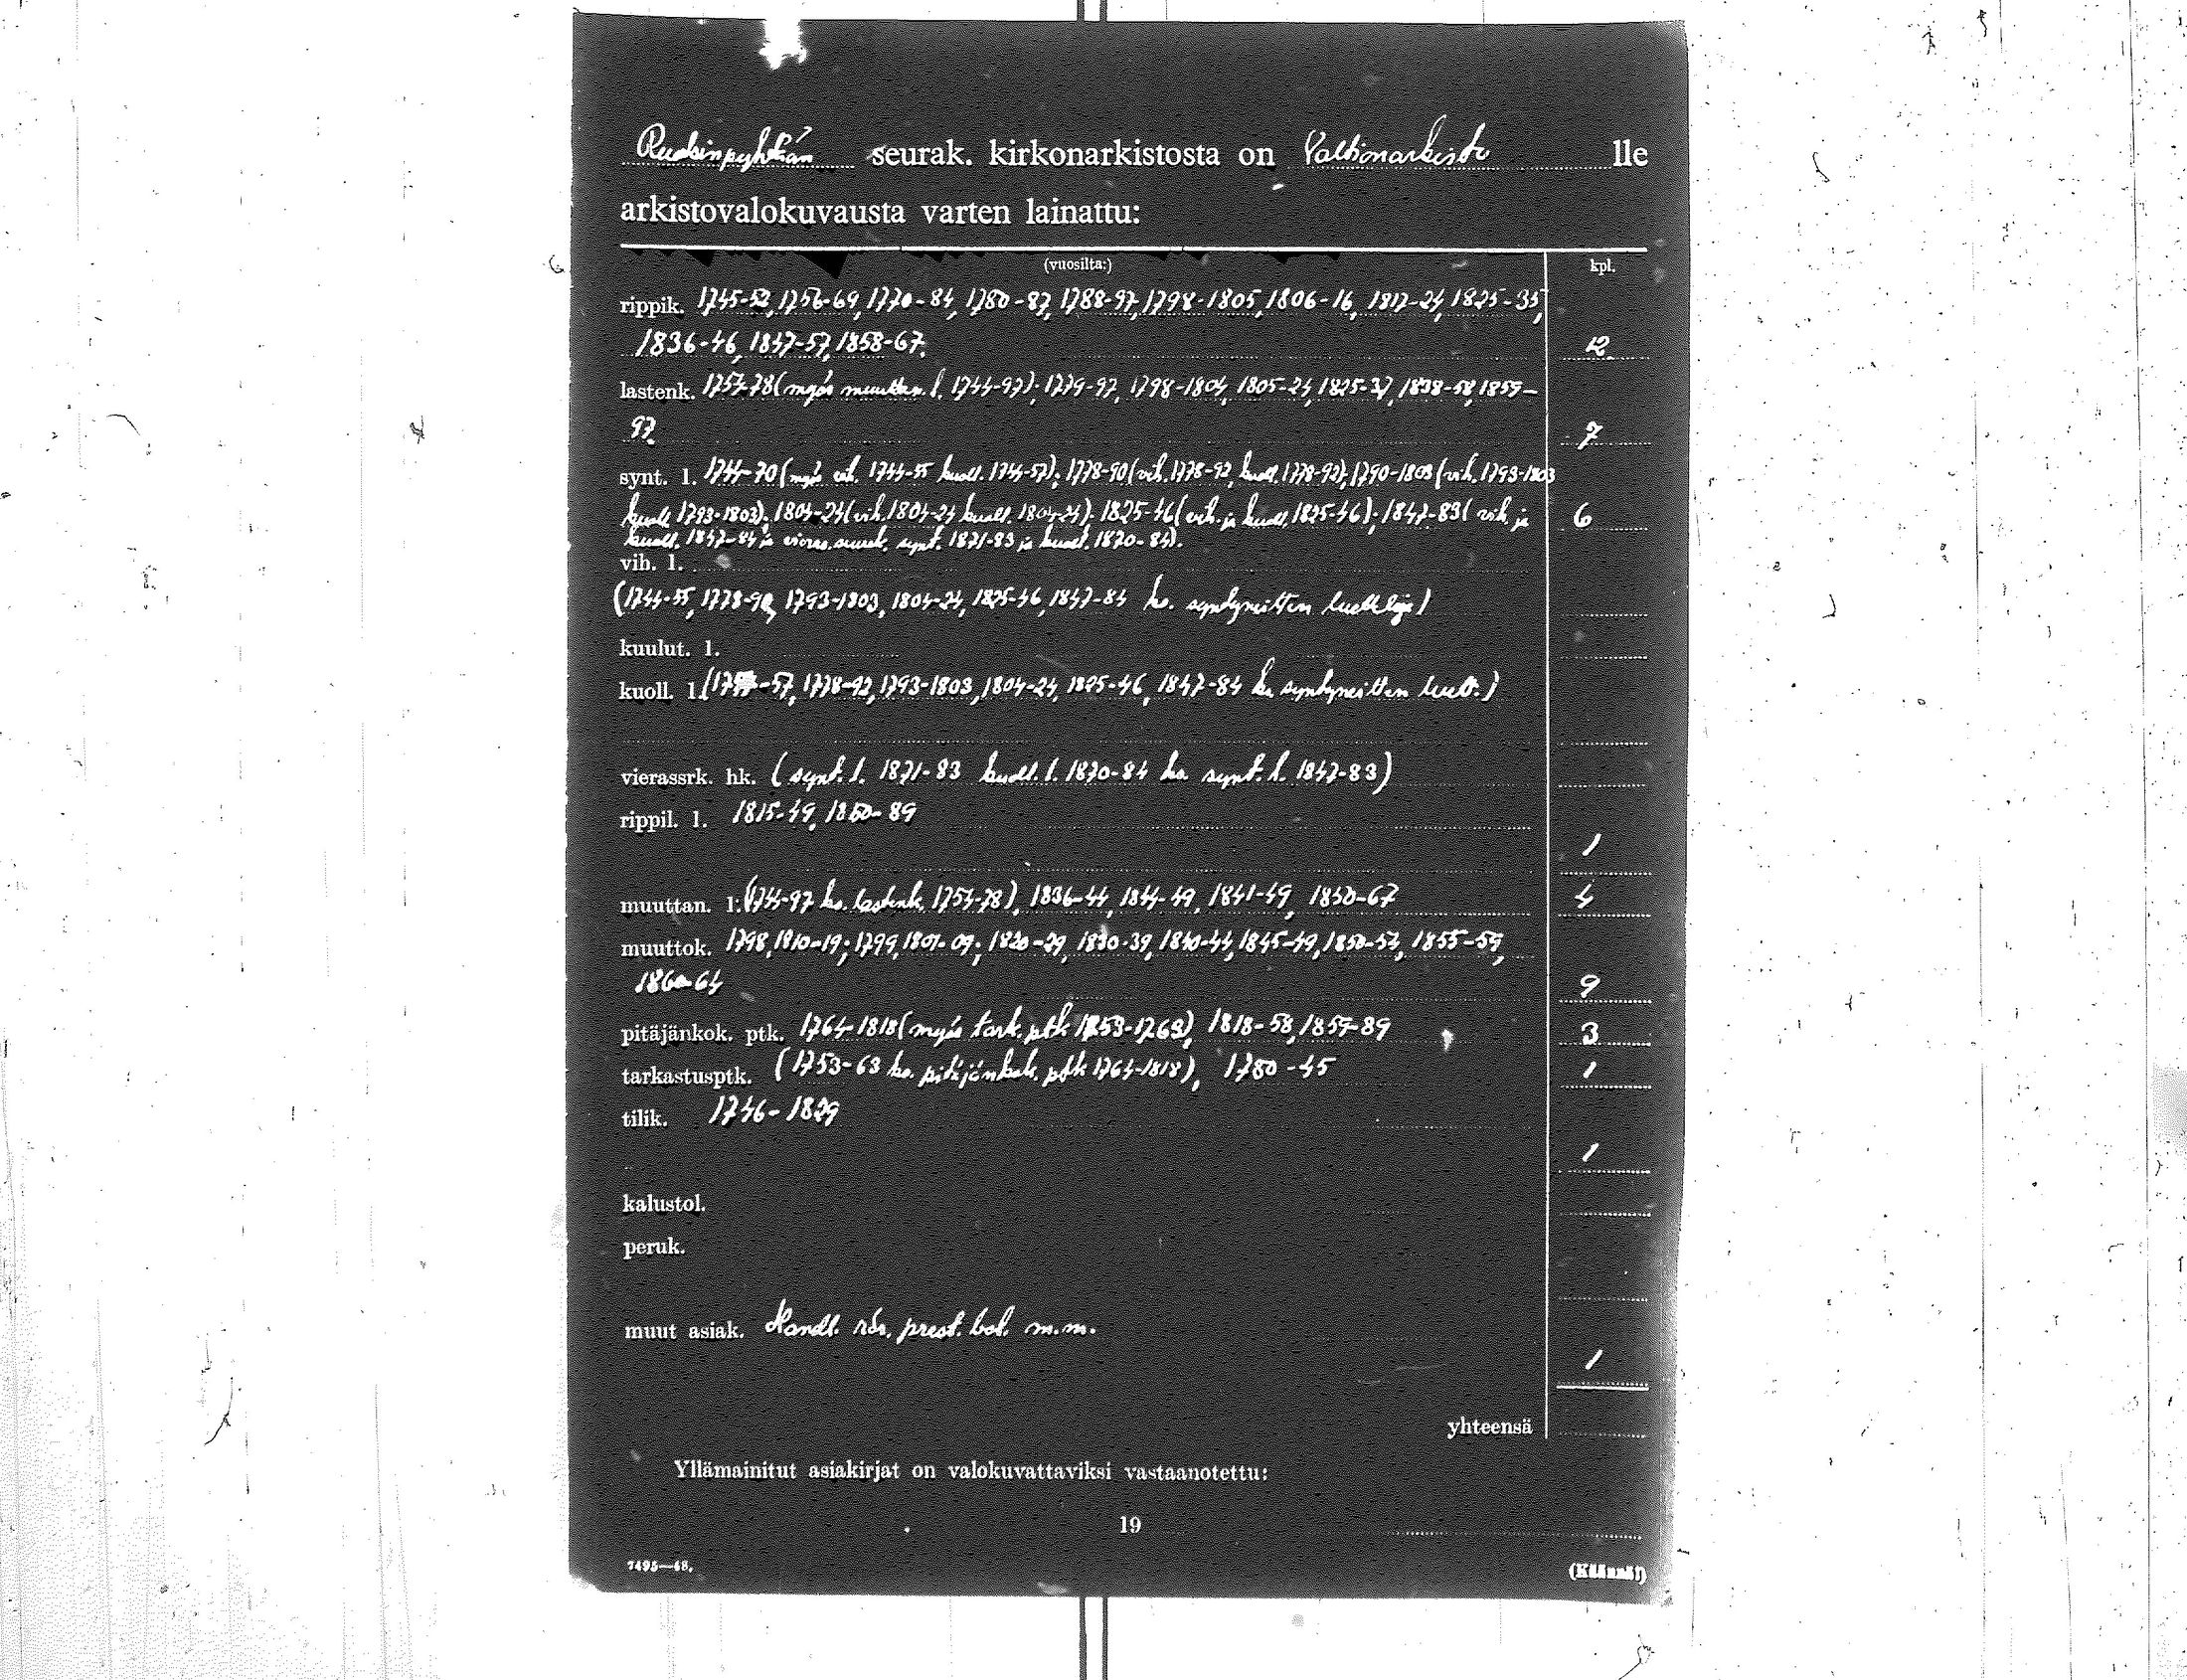 Ruotsinpyhtään seurak. kirkonarkistosta on Valtionarkisto lle
arkistovalokuvausta varten lainattu:
(vuosilta:) kpl.
rippik. 1745-52, 1756-69, 1770-84, 1780-87, 1788-97, 1798-1805, 1806-16, 1817-24, 1825-35,
1836-46, 1847-57, 1858-67. 12
lastenk. 1754-78 (myös muuttan. l. 1744-97); 1779-97, 1798-1804, 1805-24, 1825-37, 1838-58, 1859-
97. 7
synt. l. 1744-70 (myös vih. 1744-55 kuoll. 1744-57); 1778-90 (vih. 1778-92, kuoll. 1778-92); 1790-1803 (vih. 1793-1803
kuoll 1793-1803); 1804-24 (vih. 1804-24 kuoll. 1804-24); 1825-46 (vih. ja kuoll. 1825-46); 1847-83 (vih. ja 6
kuoll. 1847-84 ja vieras. seurak. synt. 1871-83 ja kuoll. 1870-84).
vih. l.
(1744-55, 1778-92, 1793-1803, 1804-24, 1825-46, 1847-84 ks. syntyneitten luetteloja)
kuulut. l.
kuoll. l. (1744-57, 1778-92, 1793-1803, 1804-24, 1825-46, 1847-84 ks syntyneitten luett.)
vierassrk. hk. (synt. l. 1871-83 kuoll. l. 1870-84 ks. synt. l. 1847-83)
rippil. l. 1815-49, 1850-89
1
muuttan. l. (1744-97 ks. lastenk. 1754-78), 1836-44, 1844-49, 1841-49, 1850-67 4
muuttok. 1798, 1810-19; 1799, 1801-09; 1820-29, 1830-39, 1840-44, 1845-49, 1850-54, 1855-59,
1860-64 9
pitäjänkok. ptk. 1764-1818 (myös tark. ptk 1753-1763), 1818-58, 1859-89 3
tarkastusptk. (1753-63 ks. pitäjänkok. ptk 1764-1818), 1780-45 1
tilik. 1746-1829
1
kalustol.
peruk.
muut asiak. Handl. rör. prest. bol. m.m.
1
yhteensä
Yllämainitut asiakirjat on valokuvattaviksi vastaanotettu:
19
7495—48. (Käännä!)